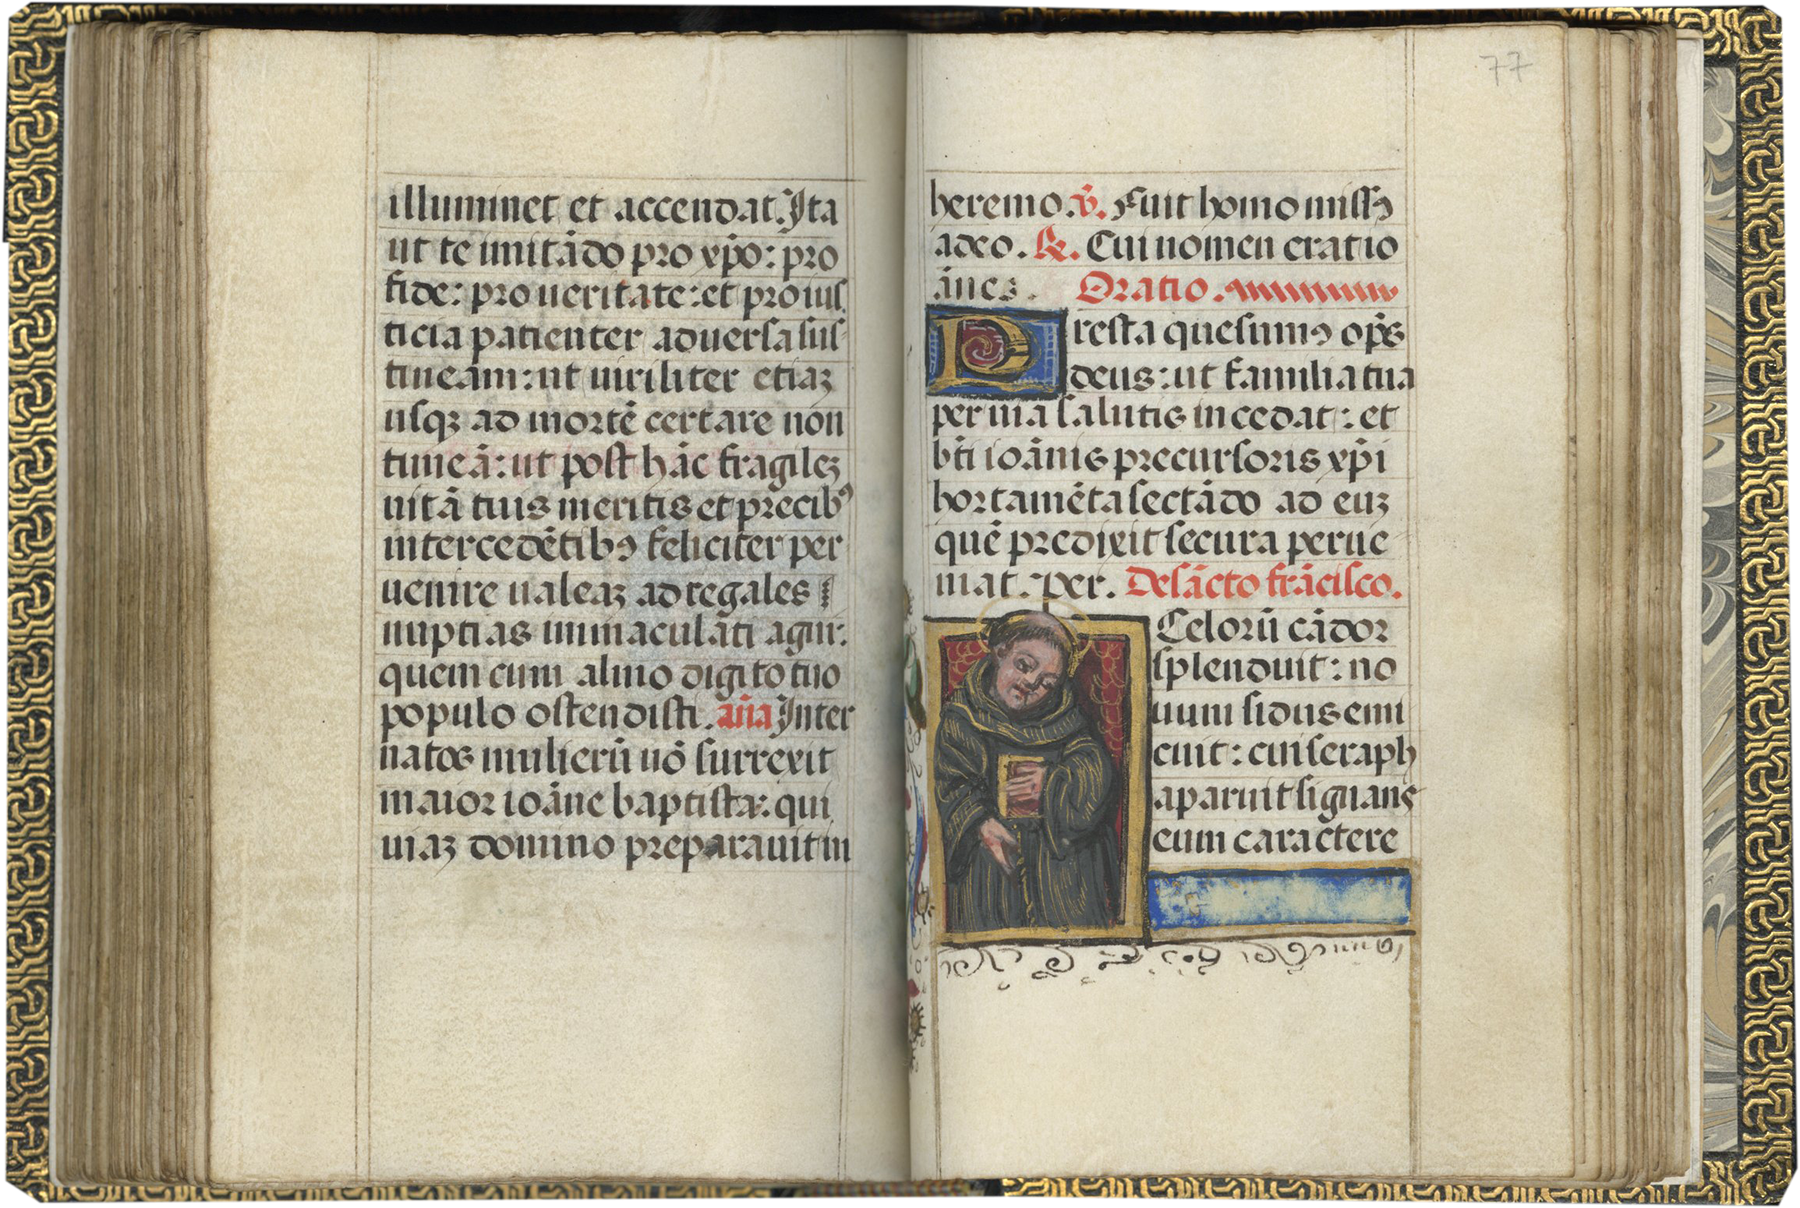 illuminet et accendat. Ita
ut te imitãdo pro xp̃o: pro
fide: pro ueritate: et pro ius
ticia patienter aduersa sus-
tineam: ut uiriliter etiaꝫ
usqꝫ ad mortẽ certare non
timeã: ut post hãc fragileꝫ
uitã tuis meritis et precibꝰ
intercedẽtibꝰ feliciter per
uenire ualeaꝫ ad regales
nuptias immaculãti agni:
quem cum almo digito tuo
populo ostendisti. añа Inter
natos mulierũ nõ surrexit
maior ioãne baptista: qui
uiaꝫ domino preparauit in
77
heremo. ℣. Fuit homo missꝰ
a deo. ℟. Cui nomen erat io
ãnes. Oratio.
Presta quesumꝰ op̃s
deus: ut familia tua
per uia salutis incedat: et
bt̃i ioãnis precursoris xp̃i
hortamẽta sectãdo ad euꝫ
quẽ predixit secura perue
niat. per. De sãcto frãcisco.
Celorũ cãdor
splenduit: no
uum sidus emi
cuit: cui seraph
aparuit signans
eum caractere